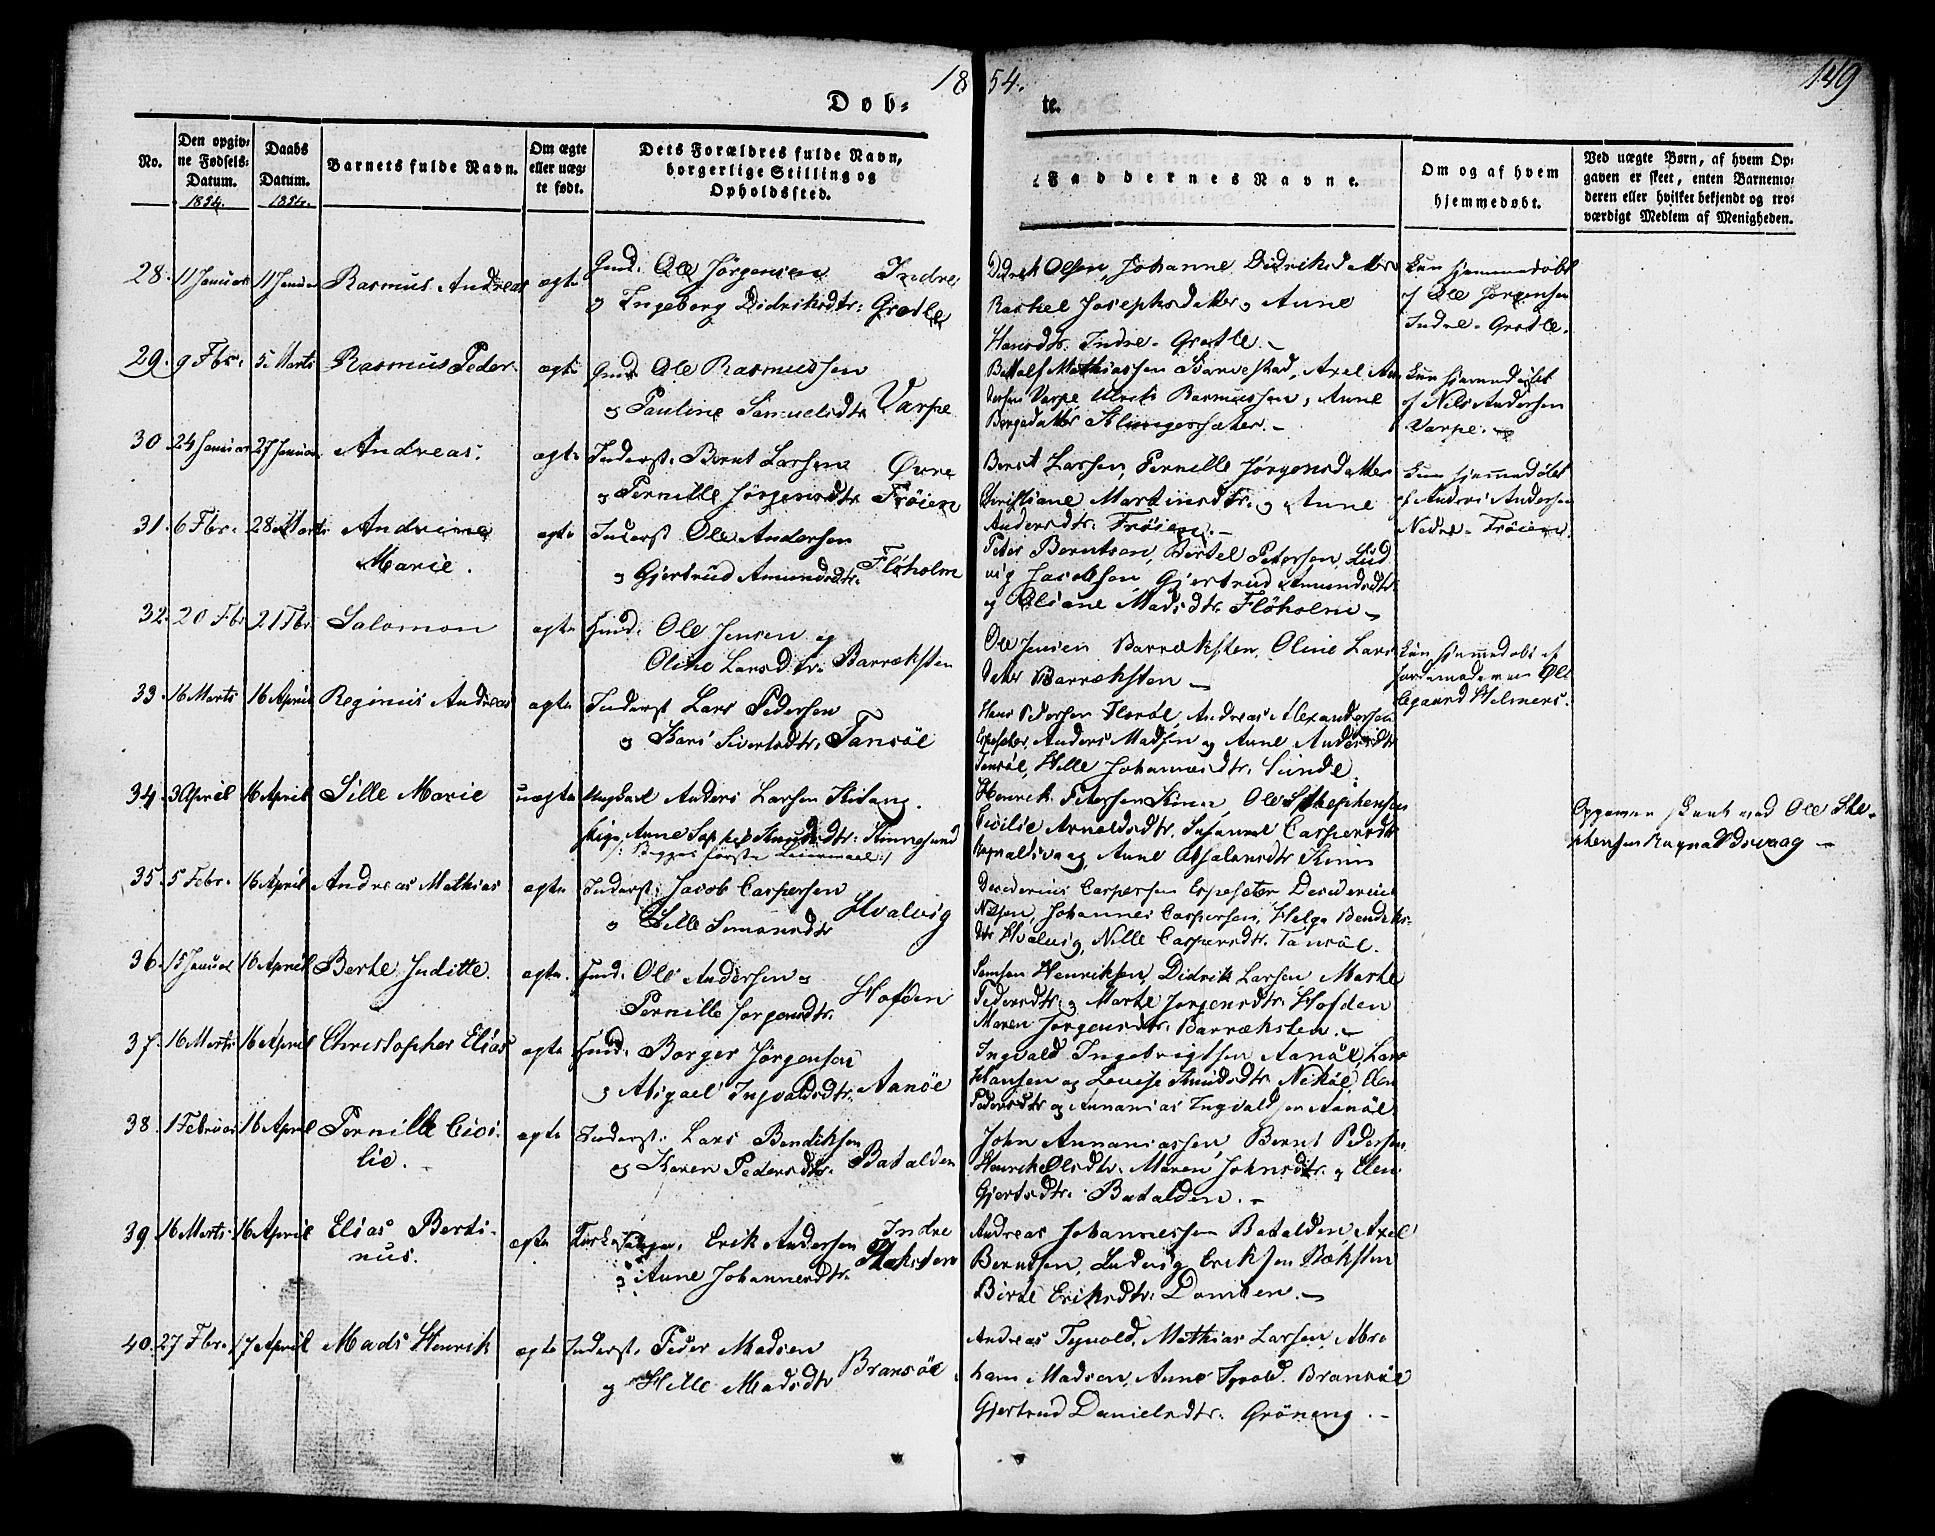 1854.
149
Døb-
te.
No.
Den opgiv-
ne Fødsels-
Datum.
1854.
Daabs
Datum.
1854.
Barnets fulde Navn.
Om ægte
eller uæg-
te født.
Dets Forældres fulde Navn,
borgerlige Stilling og
Opholdssted.
Faddernes Navne.
Om og af hvem
hjemmedøbt.
Ved uægte Børn, af hvem Op-
gaven er skeet, enten Barnemo-
deren eller hvilket bekjendt og tro-
værdigt Medlem af Menigheden.
28. 11 Januar 11 Januar Rasmus Andreas ægte Gmd: Ole Jørgensen Indre
og Ingeborg Didriksdtr: Grotle
Didrik Olsen, Johanne Didriksdatter
Rachel Josephsdatter og Anne
Hansdtr. Indre-Grotle.-
Kun hjemmedøbt
af Ole Jørgensen
Indre-Grotle.
29. 9 Fbr. 5 Marts Rasmus Peder. ægte Gmd Ole Rasmussen
og Pauline Samuelsdtr Varpe
Mathiassen Axel An
dersen Varpe Ulrik Rasmussen, Anne
Børgedatter
Kun hjemmedøbt
af Nils Andersen
Varpe.
30 24 Januar 27 Januar Andreas. ægte Inderst: Bernt Larsen Øvre
og Pernille Jørgensdtr Frøien
Bernt Larsen, Pernille Jørgensdatter
Christiane Martinsdtr. og Anne
Andersdtr: Frøien.-
Kun hjemmedøbt
af Anders Andersen
Nedre-Frøien.
31. 6 Fbr. 28 Marts Andrine ægte Inderst Ole Andersen
Marie. og Gjertrud Amundsdtr: Fløholm
Peter Berntsen, Bertel Petersen, Lud
vig Jacobsen, Gjertrud Amundsdtr
og Oliane Madsdtr. Fløholm-
32. 20 Fbr 21 Fbr Salomon ægte Gmd: Ole Jensen og
Oline Larsdtr: Barrøksten
Ole Jensen Barræksten, Oline Lars
datter Barræksten-
Kun hjemmedøbt af
Jordemoderen Ole
gaard Helmers.
33. 16 Marts 16 April Reginus Andreas ægte Inderst Lars Pedersen
og Kari Sivertsdtr: Tansøe
Hans Pedersen Florøe, Andreas Alexandersen
Espesæter, Anders Madsen og Anne Andersdtr
Tansøe, Hille Johannesdtr: Sunde.
34. 3 April 16 April Sille Marie uægte Ungkarl Anders Larsen
Pige, Anne Sophie Knudsdtr: Kinnesund
/: Begges første Leiermaal :/
Henrik Petersen Kinn, Ole Stephensen
Cicilie Arnoldsdtr, Susanne Caspersdtr
Ragnaldsvaag, Anne Absalonsdtr Kinn
Opgaven skeet ved Ole Ste-
phensen Ragnaldsvaag-
35. 5 Febr. 16 April Andreas Mathias ægte Inderst: Jacob Caspersen
og Sille Simonsdtr Hvalvig
Desiderius Caspersen Espesæter Desiderius
Nilsen, Johannes Caspersen, Helga Bendiks-
dtr Hvalvig, Nille Caspersdtr. Tansøe.
36. 15 Januar 16 April Berte Juditte. ægte. Gmd: Ole Andersen og
Pernille Jørgensdtr. Hofden
Samson Henriksen, Didrik Larsen Marte
Pedersdtr. og Marte Jørgensdtr: Hofden
Maren Jørgensdtr. Barræksten.-
37. 16 Marts 16 April Christopher Elias ægte Gmd: Børger Jørgensen
og Abigael Ingvaldsdtr: Aanøe
Ingvald Ingebrigtsen Aanøe Lars
Hansen og Lovise Knudsdtr Nekøe, Elen
Pedersdtr og Annanias Ingvaldsen Aanøe
38. 1 Februar 16 April Pernille Cici- ægte Inderst: Lars Bendiksen
lie.- og Karen Pedersdtr: Batalden
John Annaniassen, Bernt Pedersen
Henrik Olsdtr. Maren Johnsdtr. og Elen
Gjertsdtr: Batalden.-
39 16 Marts 16 April Elias Berti- ægte Erik Andersen Indre
nus. og Anne Johannesdtr: Ræksten
Andreas Johannessen Batalden, Axel
Berntsen, Ludvig Eriksen Ræksten
Birte Eriksdtr: Domben.-
40. 27 Fbr. 17 April Mads Henrik ægte Inderst: Peder Madsen
og Hille Madsdtr Bransøe.
Andreas Tyvold, Mathias Larsen, Abra
ham Madsen, Anne Tyvold. Bransøe
Gjertrud Danielsdtr: Grøneng.-